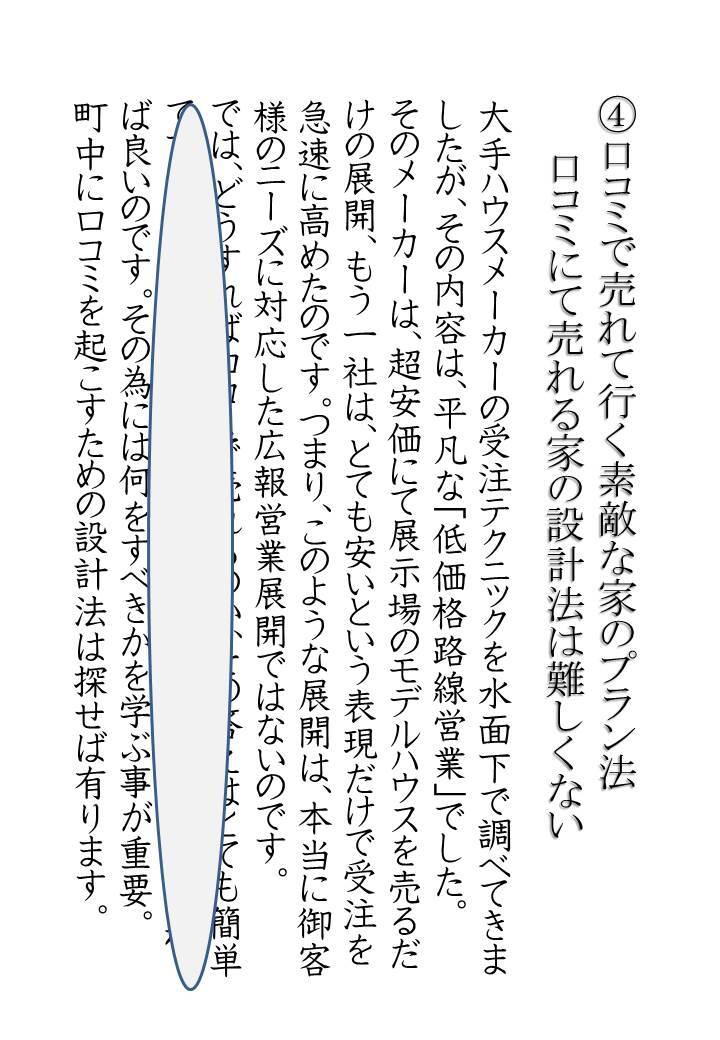 ④口コミで売れて行く素敵な家のプラン法
口コミにて売れる家の設計法は難しくない
大手ハウスメーカーの受注テクニックを水面下で調べてきま
したが、その内容は、平凡な「低価格路線営業」でした。
そのメーカーは、超安価にて展示場のモデルハウスを売るだ
けの展開、もう一社は、とても安いという表現だけで受注を
急速に高めたのです。つまり、このような展開は、本当に御客
様のニーズに対応した広報営業展開ではないのです。
では、どうすれば とても簡単
ば良いのです。その為には何をすべきかを学ぶ事が重要。
町中に口コミを起こすための設計法は探せば有ります。